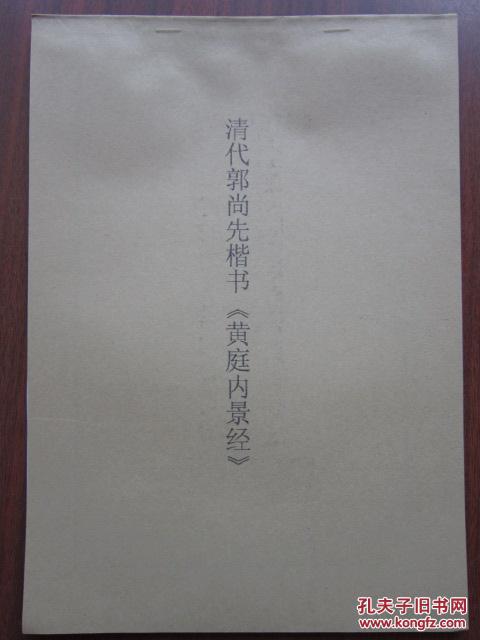 清代郭尚先楷书《黄庭内景经》
孔夫子旧书网
www.kongfz.com